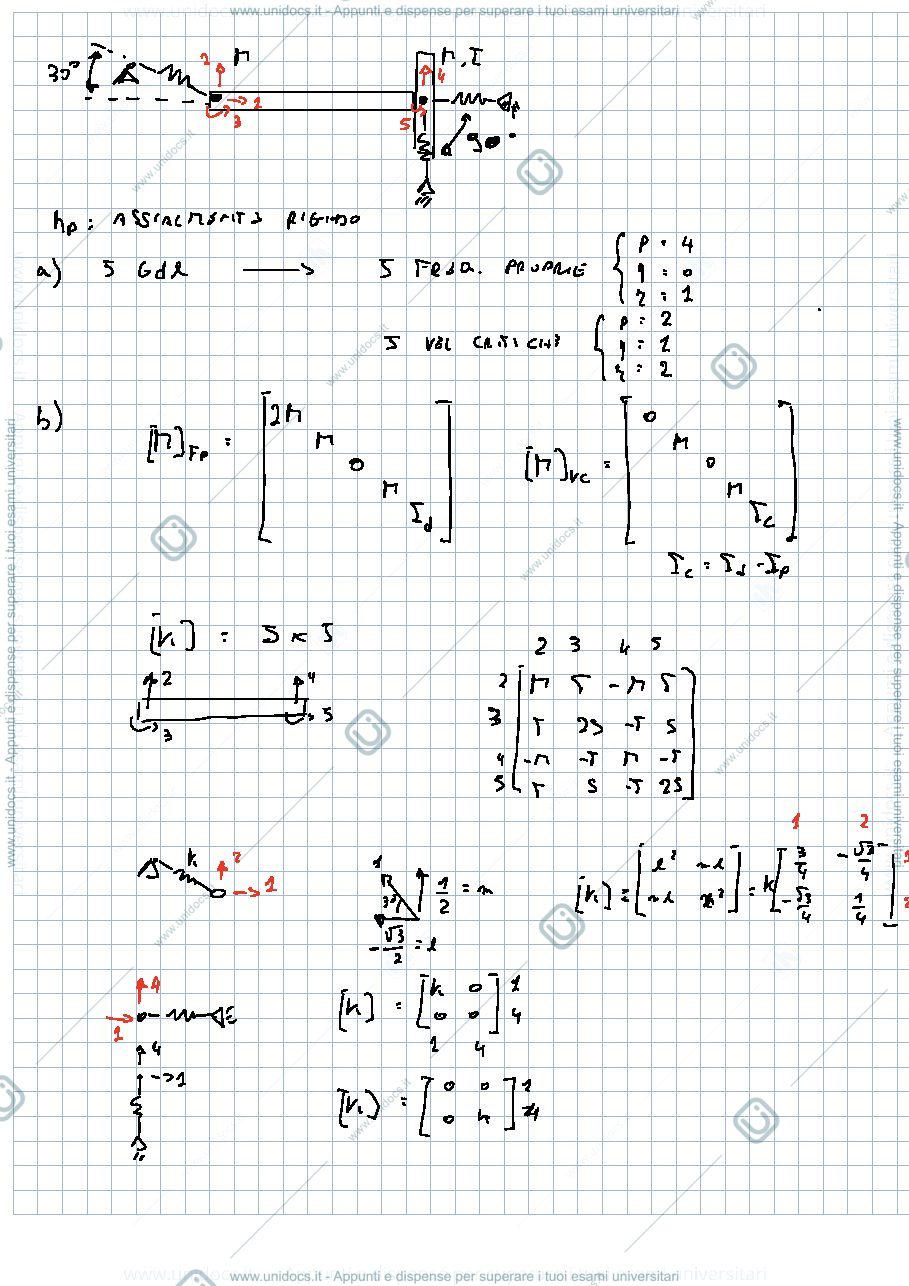 www.unidocs.it - Appunti e dispense per superare i tuoi esami universitari
30°
2 M
M, I
4
1
3
5
90°
hp: ASSIALMENTE RIGIDO
a) 5 Gdl → 5 FREQ. PROPRIE { p = 4
q = 0
r = 1
5 VEL CRITICHE { p = 2
q = 1
r = 2
b)
[M]Fp = [2M
M
0
M
Id]
[M]VC = [0
M
0
M
Ic]
Ic = Id - Ip
[K] = 5 x 5
2 4
3 5
2 3 4 5
2 [M T -M T
3 T 2S -T S
4 -M -T M -T
5 T S -T 2S]
K 2
1
1
30°
1/2 = m
-√3/2 = l
[K] = [l² ml
ml m²] = K [3/4 -√3/4
-√3/4 1/4]
1 2
1
2
4
1
[K] = [K 0
0 0] 1
4
1 4
4
1
[K] = [0 0
0 K] 1
4
www.unidocs.it - Appunti e dispense per superare i tuoi esami universitari